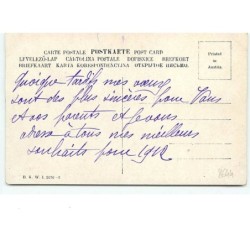 CARTE POSTALE POSTKARTE POST CARD
LEVELEZŐ-LAP CARTOLINA POSTALE DOPISNICE BREFKORT
BRIEFKAART KARTA KORESPONDENCYJNA ОТКРЫТОЕ ПИСЬМО
Printed in Austria
Quoique tardifs mes vœux
sont des plus sincères pour Vous
et vos parents
adresse à tous mes meilleurs
souhaits pour 1912